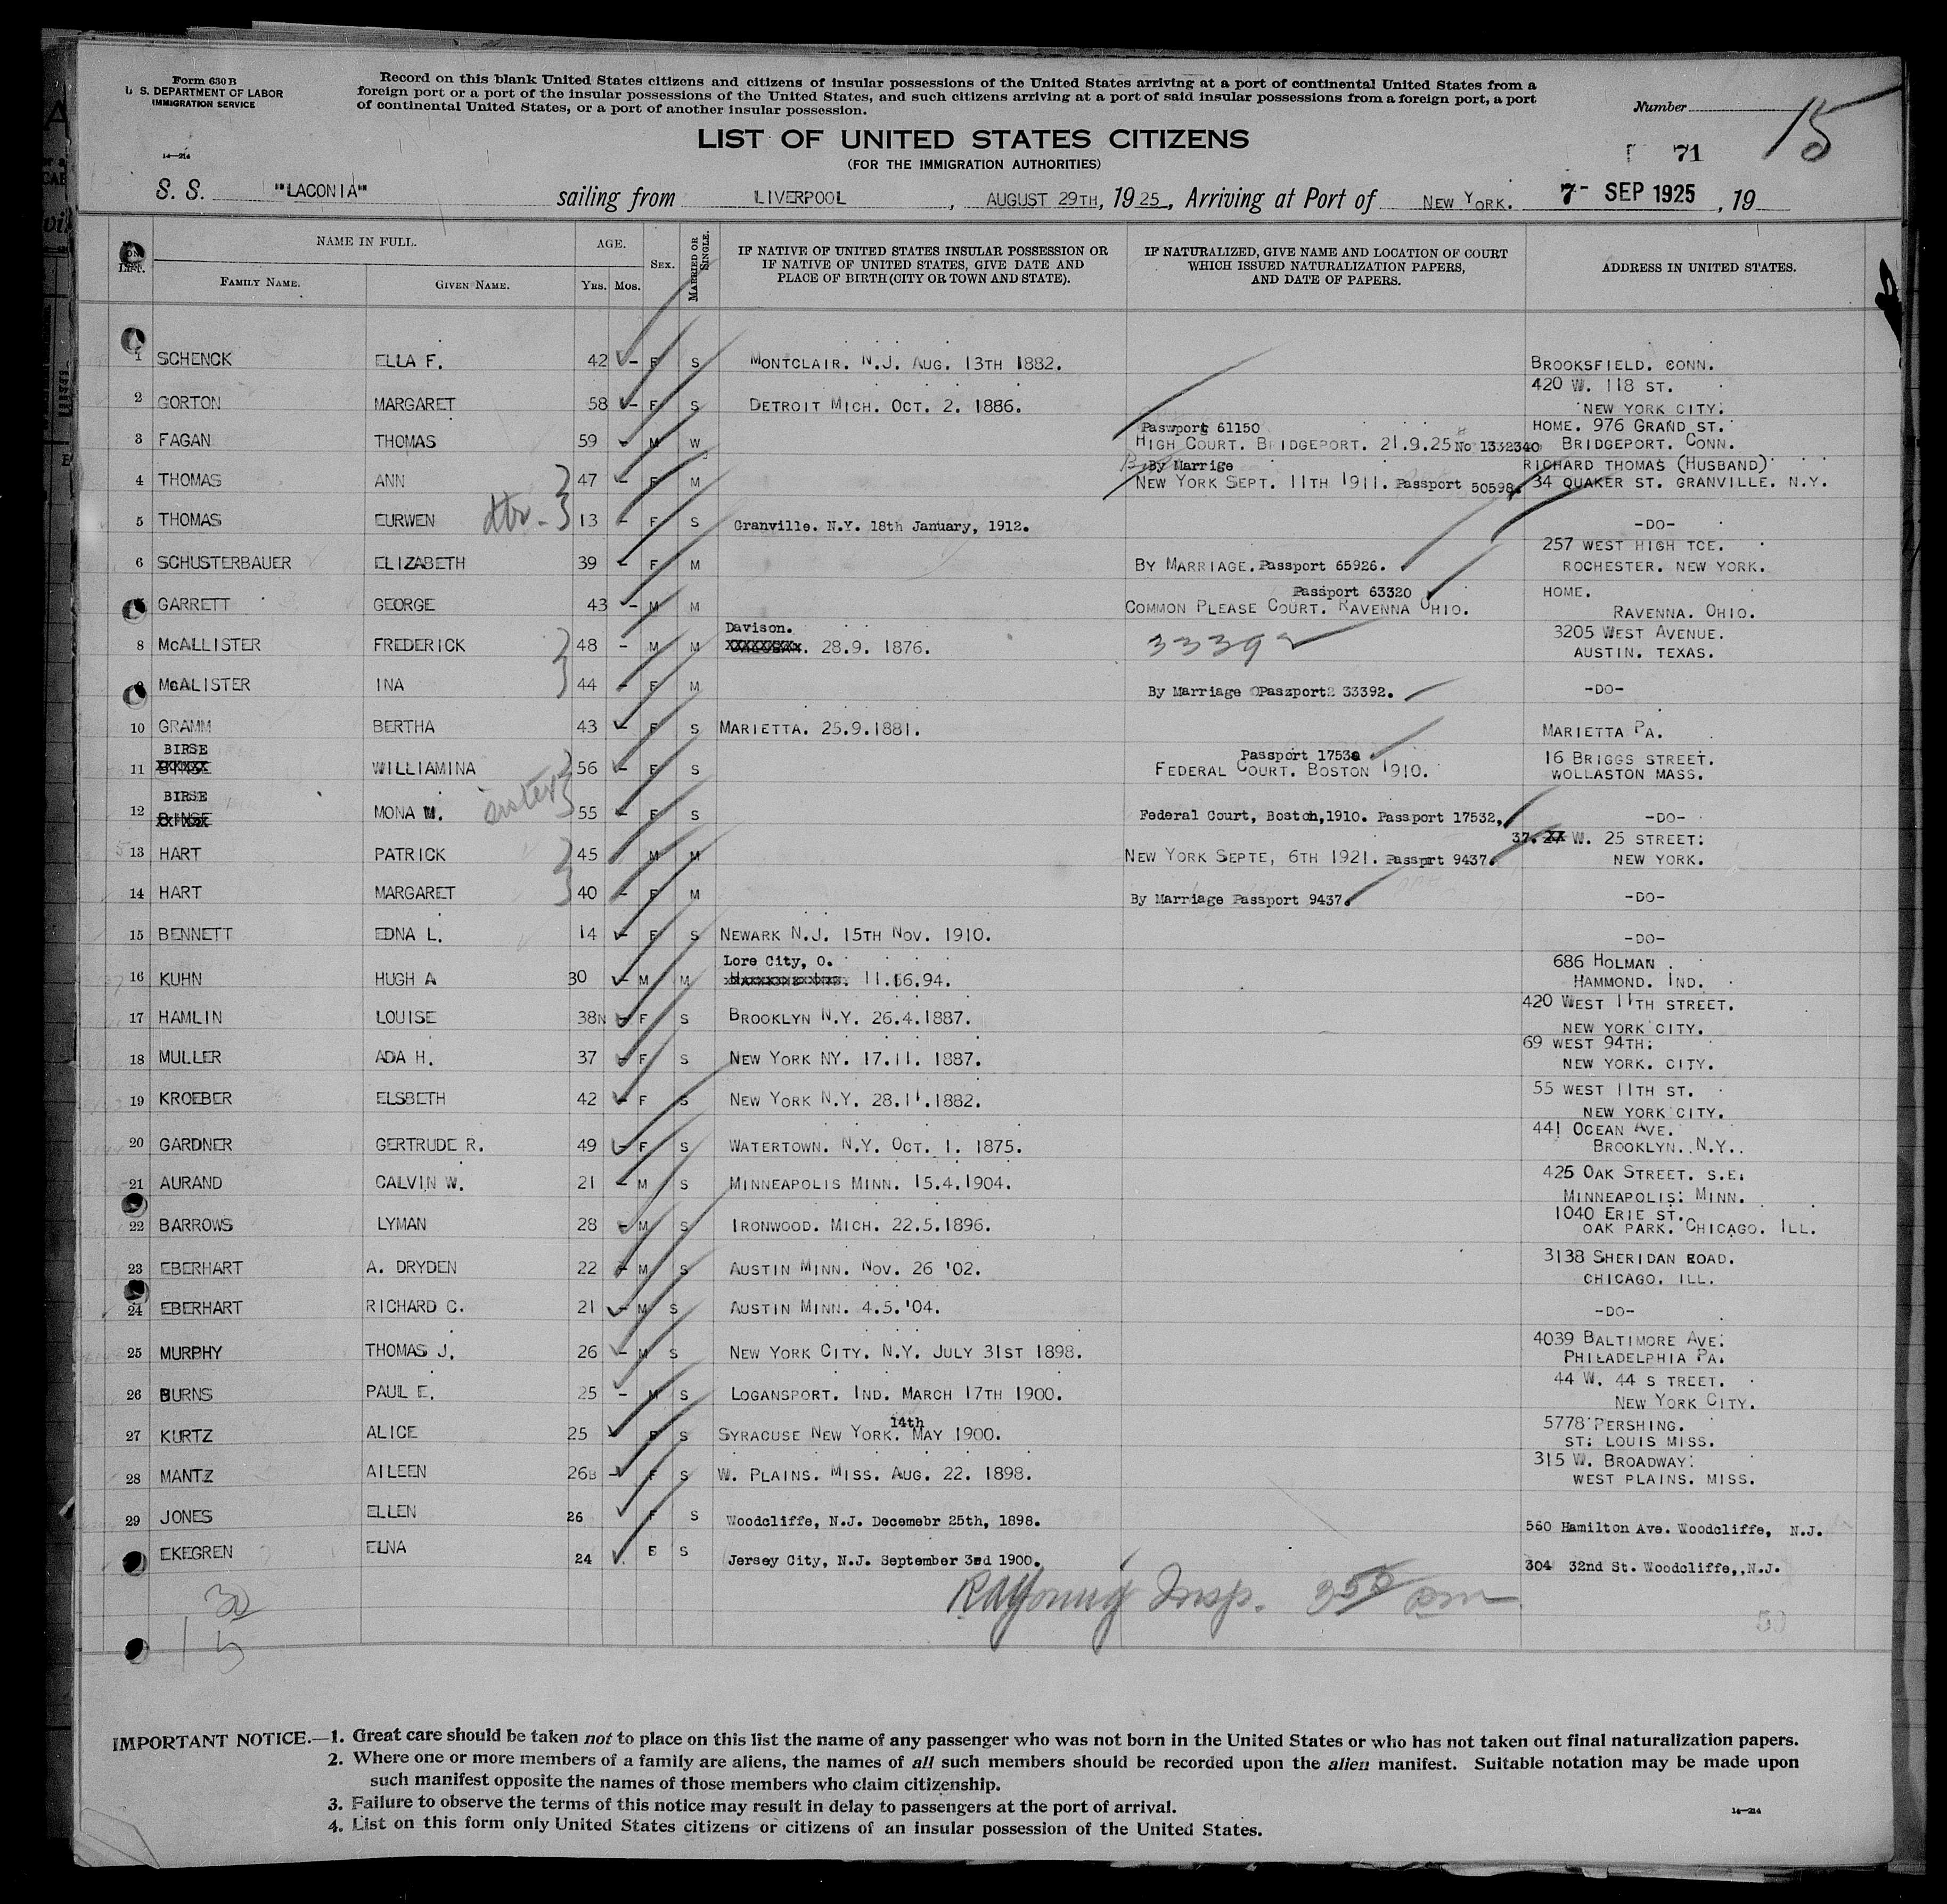 Form 630 B
U. S. DEPARTMENT OF LABOR
IMMIGRATION SERVICE
Record on this blank United States citizens and citizens of insular possessions of the United States arriving at a port of continental United States from a
foreign port or a port of the insular possessions of the United States, and such citizens arriving at a port of said insular possessions from a foreign port, a port
of continental United States, or a port of another insular possession.
Number
15
LIST OF UNITED STATES CITIZENS
(FOR THE IMMIGRATION AUTHORITIES)
14—214
71
S. S. "LACONIA" sailing from LIVERPOOL, AUGUST 29TH, 1925, Arriving at Port of NEW YORK. 7- SEP 1925, 19
No. ON LIST. NAME IN FULL. AGE. SEX. MARRIED OR SINGLE. IF NATIVE OF UNITED STATES INSULAR POSSESSION OR IF NATIVE OF UNITED STATES, GIVE DATE AND PLACE OF BIRTH (CITY OR TOWN AND STATE). IF NATURALIZED, GIVE NAME AND LOCATION OF COURT WHICH ISSUED NATURALIZATION PAPERS, AND DATE OF PAPERS. ADDRESS IN UNITED STATES.
FAMILY NAME. GIVEN NAME. YRS. MOS.
1 SCHENCK ELLA F. 42 - F S MONTCLAIR. N.J. AUG. 13TH 1882. BROOKSFIELD. CONN.
420 W. 118 ST.
2 GORTON MARGARET 58 - F S DETROIT MICH. OCT. 2. 1886. NEW YORK CITY.
Passport 61150 HOME. 976 GRAND ST.
3 FAGAN THOMAS 59 - M W HIGH COURT. BRIDGEPORT. 21.9.25 No 1332340 BRIDGEPORT. CONN.
By Marrige RICHARD THOMAS (HUSBAND)
4 THOMAS ANN 47 - F M NEW YORK SEPT. 11TH 1911. Passport 50598. 34 QUAKER ST. GRANVILLE. N.Y.
5 THOMAS EURWEN dtr - 13 - F S Granville. N.Y. 18th January, 1912. -DO-
257 WEST HIGH TCE.
6 SCHUSTERBAUER ELIZABETH 39 - F M BY MARRIAGE. Passport 65926. ROCHESTER. NEW YORK.
Passport 63320 HOME.
GARRETT GEORGE 43 - M M COMMON PLEASE COURT. RAVENNA OHIO. RAVENNA. OHIO.
Davison. 3205 WEST AVENUE.
8 McALLISTER FREDERICK 48 - M M 28.9. 1876. 33392 AUSTIN. TEXAS.
McALISTER INA 44 - F M By Marriage Paszport 33392. -DO-
10 GRAMM BERTHA 43 - F S MARIETTA. 25.9.1881. MARIETTA PA.
BIRSE Passport 1753 16 BRIGGS STREET.
11 WILLIAMINA 56 - F S FEDERAL COURT. BOSTON 1910. WOLLASTON MASS.
BIRSE
12 MONA M. sister 55 - F S Federal Court, Boston, 1910. Passport 17532, -DO-
37. W. 25 STREET.
13 HART PATRICK 45 M M NEW YORK SEPTE, 6TH 1921. Passprt 9437. NEW YORK.
14 HART MARGARET 40 - F M By Marriage Passport 9437. -DO-
15 BENNETT EDNA L. 14 - F S NEWARK N.J. 15TH NOV. 1910. -DO-
Lore City, O. 686 HOLMAN
16 KUHN HUGH A 30 - M M 11.16.94. HAMMOND. IND.
420 WEST 11TH STREET.
17 HAMLIN LOUISE 38N - F S BROOKLYN N.Y. 26.4.1887. NEW YORK CITY.
69 WEST 94TH.
18 MULLER ADA H. 37 - F S NEW YORK NY. 17.11. 1887. NEW YORK. CITY.
55 WEST 11TH ST.
19 KROEBER ELSBETH 42 - F S NEW YORK N.Y. 28.11.1882. NEW YORK CITY.
441 OCEAN AVE.
20 GARDNER GERTRUDE R. 49 - F S WATERTOWN. N.Y. OCT. 1. 1875. BROOKLYN. N.Y.
425 OAK STREET. S.E.
21 AURAND CALVIN W. 21 - M S MINNEAPOLIS MINN. 15.4.1904. MINNEAPOLIS. MINN.
1040 ERIE ST.
22 BARROWS LYMAN 28 - M S IRONWOOD. MICH. 22.5.1896. OAK PARK. CHICAGO. ILL.
3138 SHERIDAN ROAD.
23 EBERHART A. DRYDEN 22 - M S AUSTIN MINN. NOV. 26 '02. CHICAGO. ILL.
24 EBERHART RICHARD C. 21 - M S AUSTIN MINN. 4.5.'04. -DO-
4039 BALTIMORE AVE.
25 MURPHY THOMAS J. 26 - M S NEW YORK CITY. N.Y. JULY 31ST 1898. PHILADELPHIA PA.
44 W. 44 S TREET.
26 BURNS PAUL E. 25 - M S LOGANSPORT. IND. MARCH 17TH 1900. NEW YORK CITY.
14th 5778 PERSHING.
27 KURTZ ALICE 25 F S SYRACUSE NEW YORK. MAY 1900. ST. LOUIS MISS.
315 W. BROADWAY.
28 MANTZ AILEEN 26B - F S W. PLAINS. MISS. AUG. 22. 1898. WEST PLAINS. MISS.
29 JONES ELLEN 26 F S Woodcliffe, N.J. Decemebr 25th, 1898. 560 Hamilton Ave. Woodcliffe, N.J.
EKEGREN ELNA 24 S Jersey City, N.J. September 3rd 1900. 304 32nd St. Woodcliffe,,N.J.
30 RAYoung Insp. 3 50 pm
15 50
IMPORTANT NOTICE.—1. Great care should be taken not to place on this list the name of any passenger who was not born in the United States or who has not taken out final naturalization papers.
2. Where one or more members of a family are aliens, the names of all such members should be recorded upon the alien manifest. Suitable notation may be made upon
such manifest opposite the names of those members who claim citizenship.
3. Failure to observe the terms of this notice may result in delay to passengers at the port of arrival.
4. List on this form only United States citizens or citizens of an insular possession of the United States.
14—214